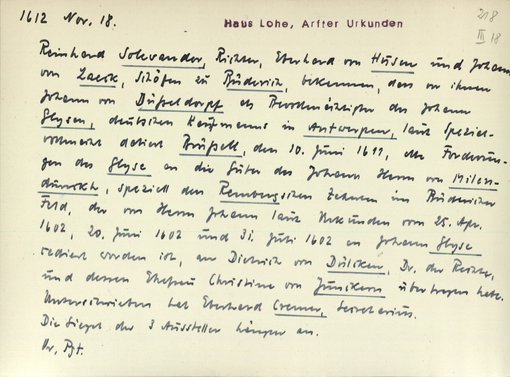 1612 Nov. 18.
Haus Lohe, Arffter Urkunden
218
III 18
Reinhard Solevander, Richter, Eberhard von Husen und Johann
von Laeck, Schöffen zu Büderich, bekennen, dass vor ihnen
Johann von Düsseldorpf als Bevollmächtigter des Johann
Ghysen, deutschen Kaufmanns in Antwerpen, laut Spezial-
vollmacht datiert Brüssell, den 10. Juni 1611, alle Forderun-
gen des Ghyse an die Güter des Johann Herrn von Milen-
dunckh, speziell den Rembergschen Zehnten im Büdericher
Feld, der von Herrn Johann laut Urkunden vom 25. Apr.
1602, 20. Juni 1602 und 31. Juli 1602 an Johann Ghyse
cediert worden ist, an Dietrich von Dülcken, Dr. der Rechte,
und dessen Ehefrau Christine von Junckern übertragen habe.
Unterschrieben hat Eberhard Cremer, Secretarius.
Die Siegel der 3 Aussteller hängen an.
Or. Pgt.